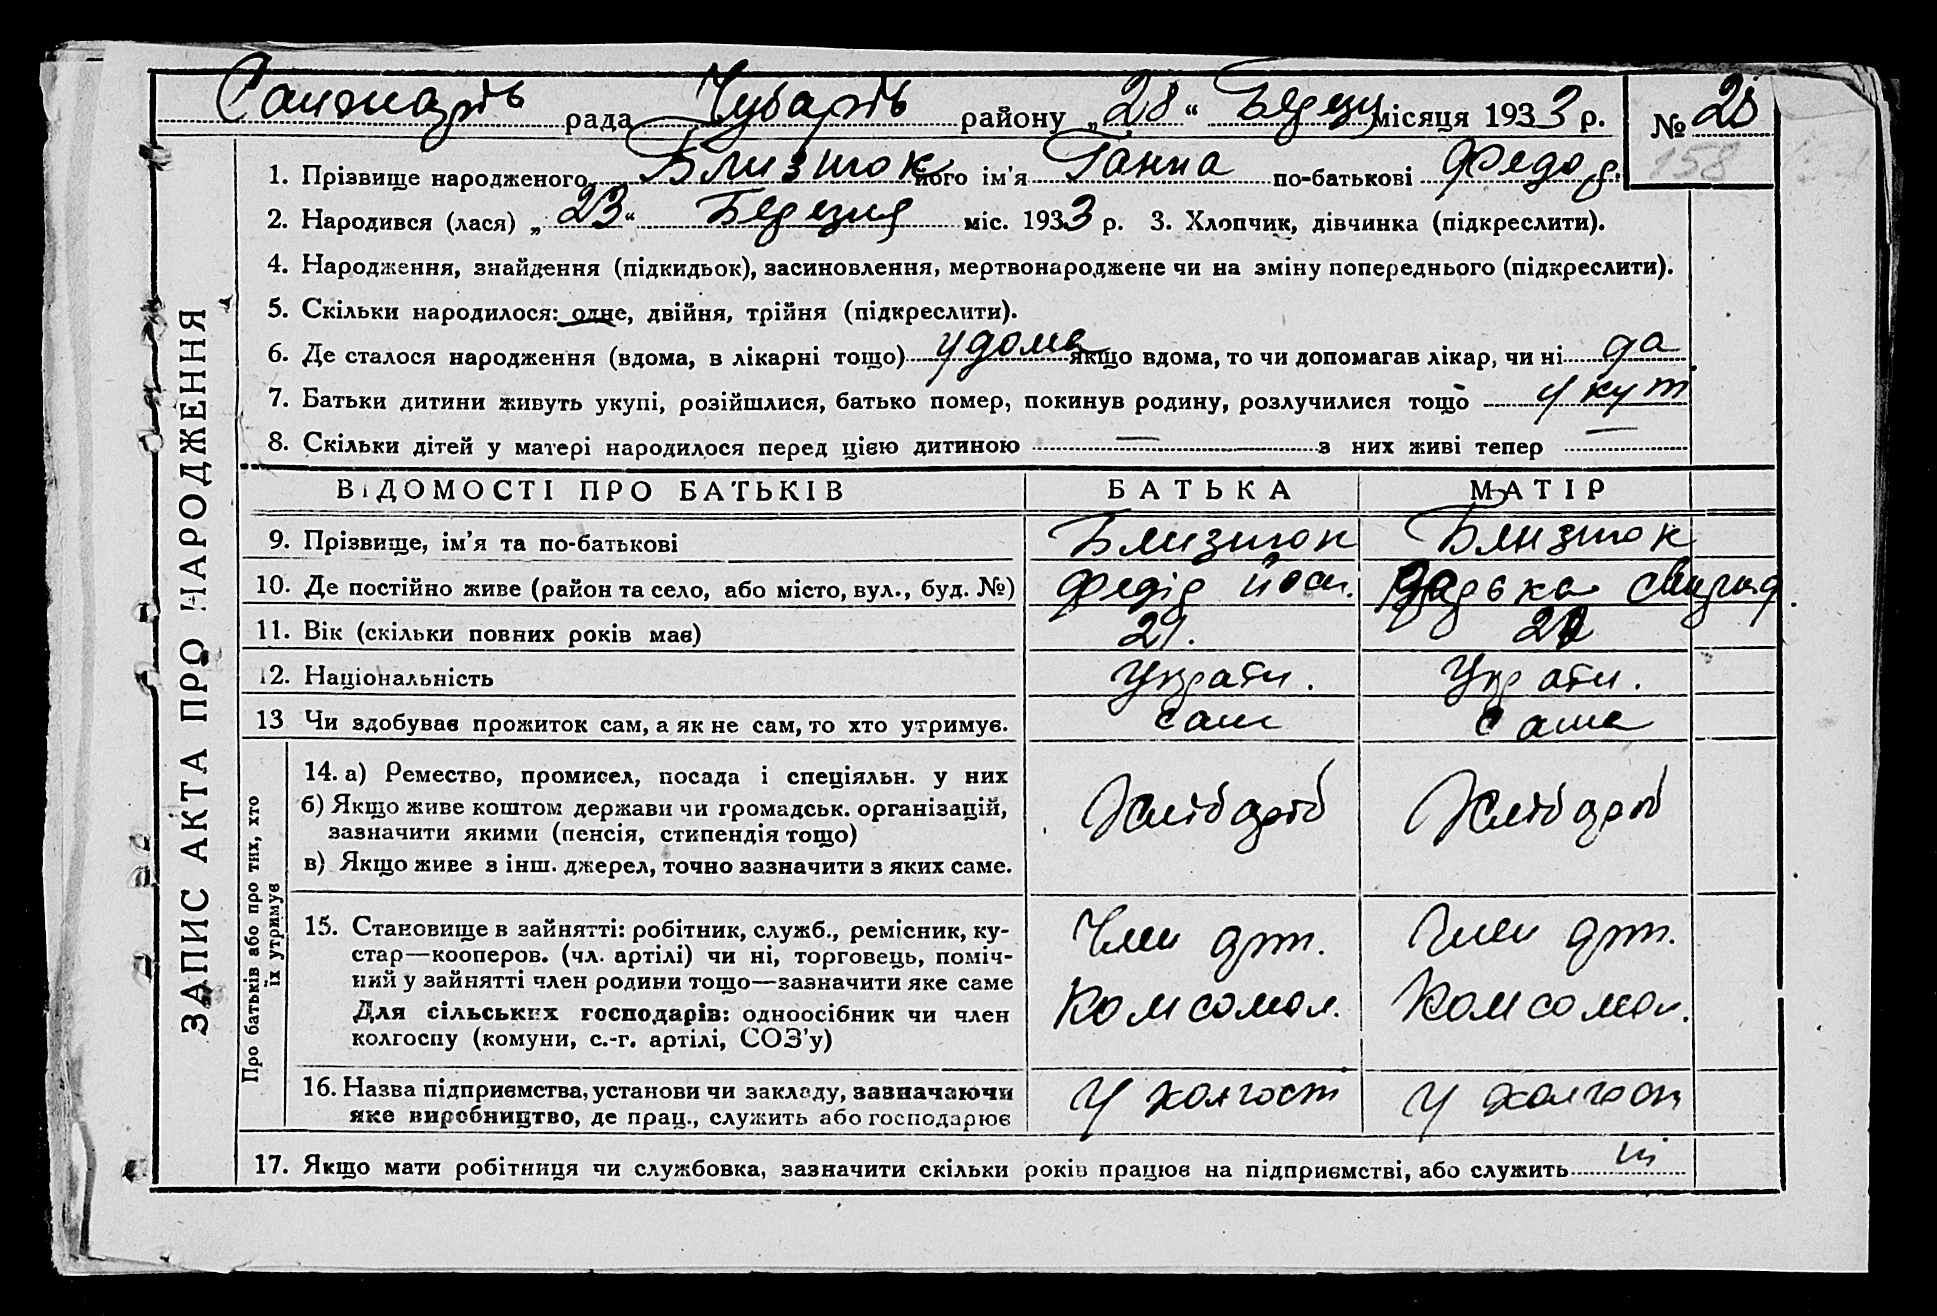 рада Чубарів району „28“ Березн місяця 1933 р. № 28
158
1. Прізвище народженого Близнюк його ім'я Ганна по-батькові Федор.
2. Народився (лася) „23“ Березня міс. 1933 р. 3. Хлопчик, дівчинка (підкреслити).
4. Народження, знайдення (підкидьок), засиновлення, мертвонароджене чи на зміну попереднього (підкреслити).
5. Скільки народилося: одне, двійня, трійня (підкреслити).
6. Де сталося народження (вдома, в лікарні тощо) удома якщо вдома, то чи допомагав лікар, чи ні да
7. Батьки дитини живуть укупі, розійшлися, батько помер, покинув родину, розлучилися тощо укуп
8. Скільки дітей у матері народилося перед цією дитиною — з них живі тепер —
ЗАПИС АКТА ПРО НАРОДЖЕННЯ
ВІДОМОСТІ ПРО БАТЬКІВ БАТЬКА МАТІР
9. Прізвище, ім'я та по-батькові Близнюк Близнюк
10. Де постійно живе (район та село, або місто, вул., буд. №) Федір Йос.
11. Вік (скільки повних років має) 29.
12. Національність Україн. Україн.
13 Чи здобував прожиток сам, а як не сам, то хто утримує. сам сама
Про батьків або про тих, хто
їх утримує
14. а) Ремество, промисел, посада і спеціяльн. у них
б) Якщо живе коштом держави чи громадськ. організацій,
зазначити якими (пенсія, стипендія тощо) Хлібороб Хлібороб
в) Якщо живе з інш. джерел, точно зазначити з яких саме.
15. Становище в зайнятті: робітник, служб., ремісник, ку-
стар—кооперов. (чл. артілі) чи ні, торговець, поміч- Член арт. Член арт.
ний у зайнятті член родини тощо—зазначити яке саме
Для сільських господарів: одноосібник чи член Комсомол. Комсомол.
колгоспу (комуни, с.-г. артілі, СОЗ'у)
16. Назва підприємства, установи чи закладу, зазначаючи У колгосп У колгосп
яке виробництво, де прац., служить або господарює
17. Якщо мати робітниця чи службовка, зазначити скільки років працює на підприємстві, або служить ні